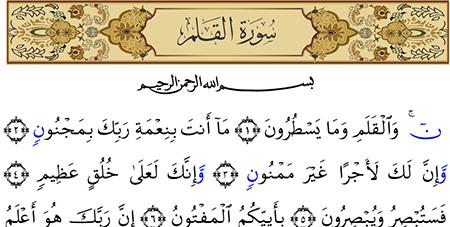 سُورَةُ القَلَمِ
بِسْمِ اللهِ الرَّحْمٰنِ الرَّحِيمِ
نٓ ۚ وَالْقَلَمِ وَمَا يَسْطُرُونَ ﴿١﴾ مَا أَنتَ بِنِعْمَةِ رَبِّكَ بِمَجْنُونٍ ﴿٢﴾
وَإِنَّ لَكَ لَأَجْرًا غَيْرَ مَمْنُونٍ ﴿٣﴾ وَإِنَّكَ لَعَلَىٰ خُلُقٍ عَظِيمٍ ﴿٤﴾
فَسَتُبْصِرُ وَيُبْصِرُونَ ﴿٥﴾ بِأَييِّكُمُ الْمَفْتُونُ ﴿٦﴾ إِنَّ رَبَّكَ هُوَ أَعْلَمُ